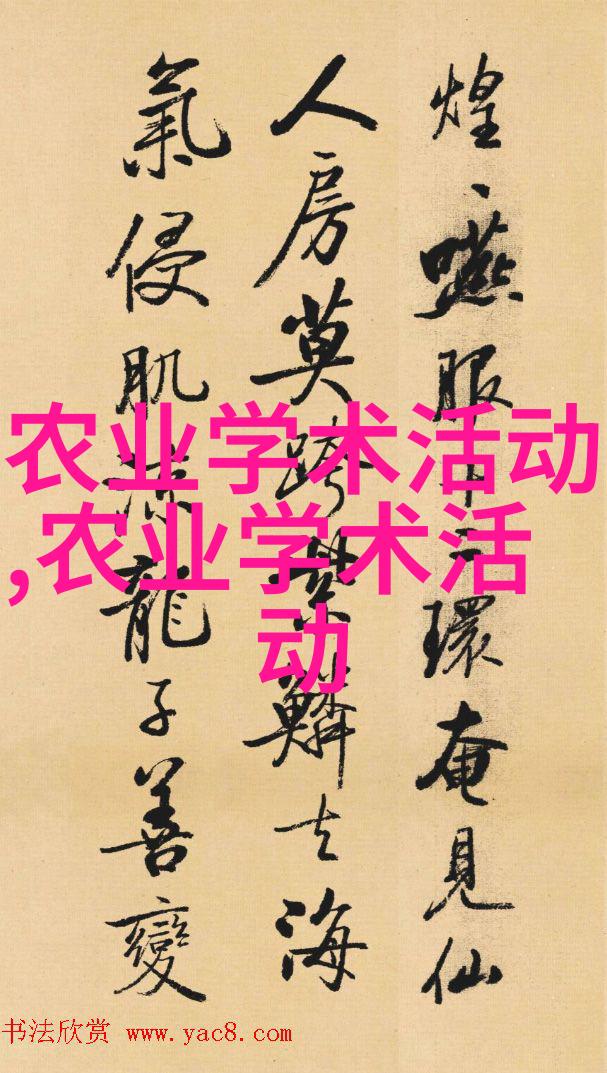 煌、嚥服十二環奄見仙
人房莫跨紫鱗去海
氣侵肌涼龍子善變
农业学术活动
,农业学术活
动
书法欣赏 www.yac8.com